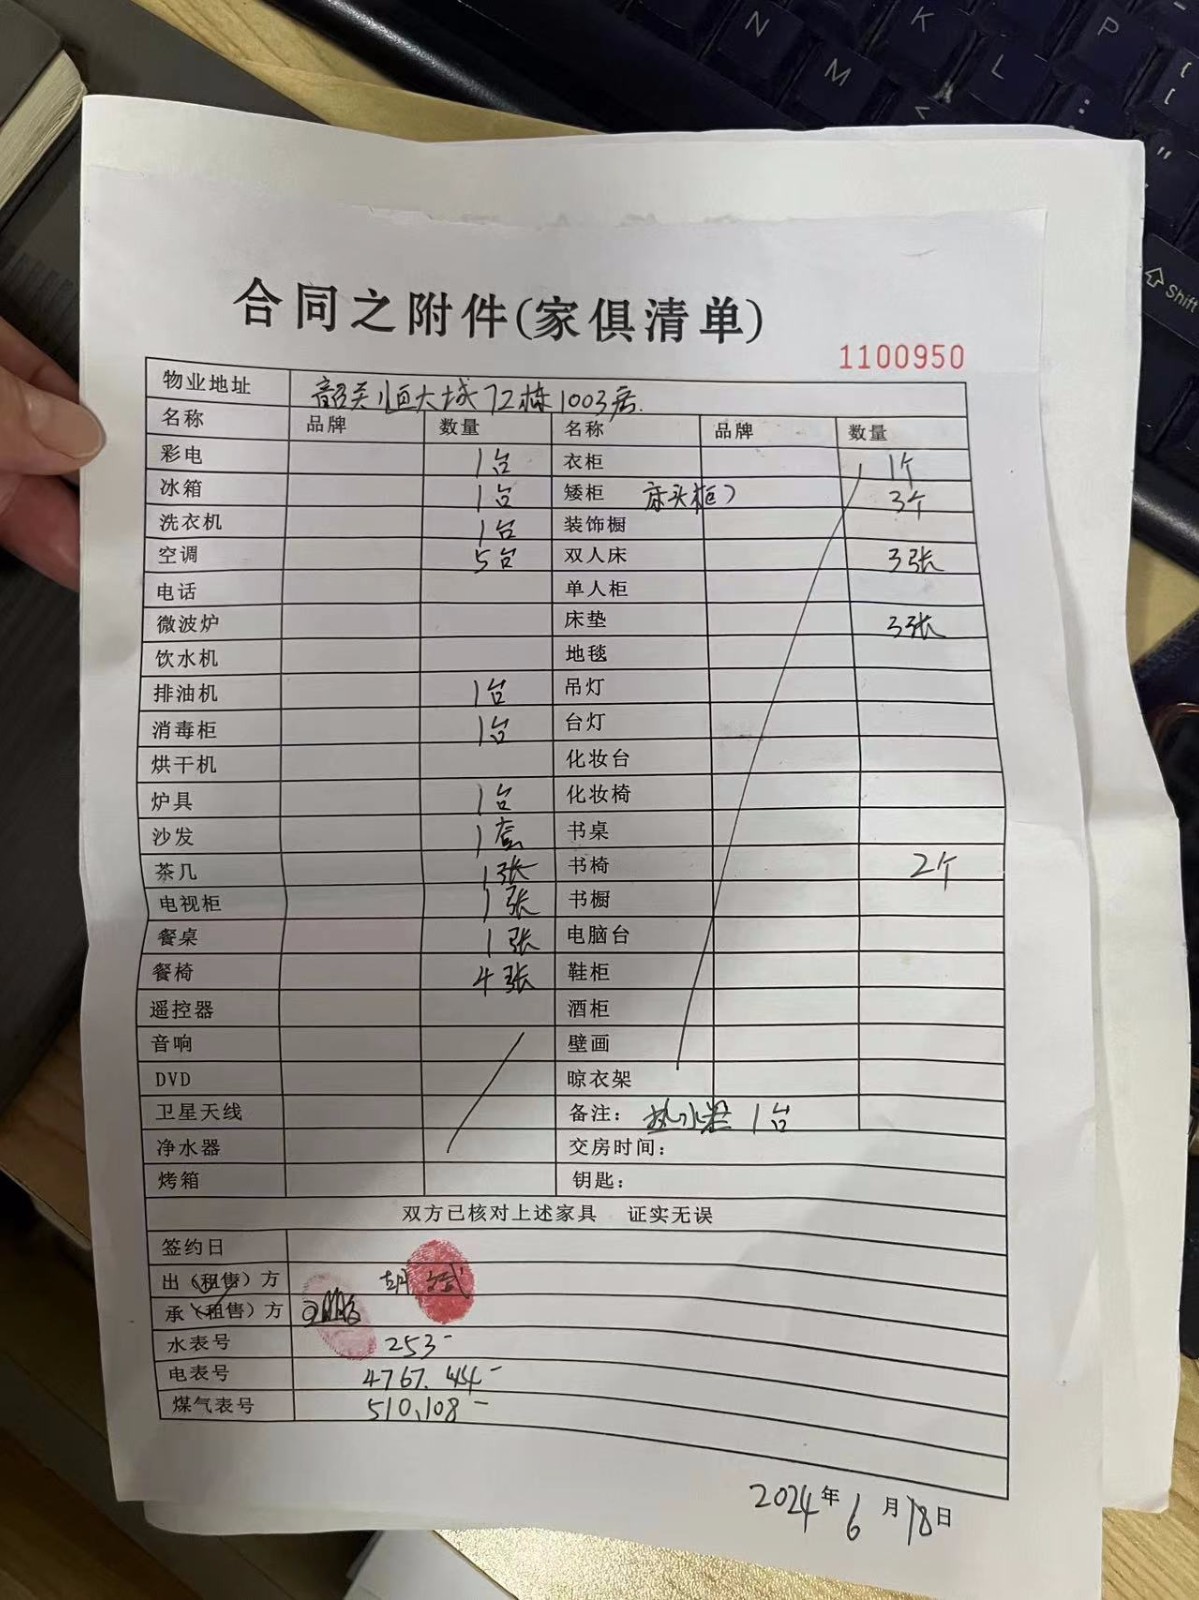 合同之附件(家俱清单)
1100950
物业地址 韶关恒大城72栋1003房.
名称 品牌 数量 名称 品牌 数量
彩电 1台 衣柜 1个
冰箱 1台 矮柜 床头柜2 3个
洗衣机 1台 装饰橱
空调 5台 双人床 3张
电话 单人柜
微波炉 床垫 3张
饮水机 地毯
排油机 1台 吊灯
消毒柜 1台 台灯
烘干机 化妆台
炉具 1台 化妆椅
沙发 1套 书桌
茶几 1张 书椅 2个
电视柜 1张 书橱
餐桌 1张 电脑台
餐椅 4张 鞋柜
遥控器 酒柜
音响 壁画
DVD 晾衣架
卫星天线 备注: 热水器 1台
净水器 交房时间:
烤箱 钥匙:
双方已核对上述家具 证实无误
签约日
出(租售)方 胡
承(租售)方
水表号 253-
电表号 4767.44-
煤气表号 510,108-
2024年6月18日
N K P M L < : " Shift